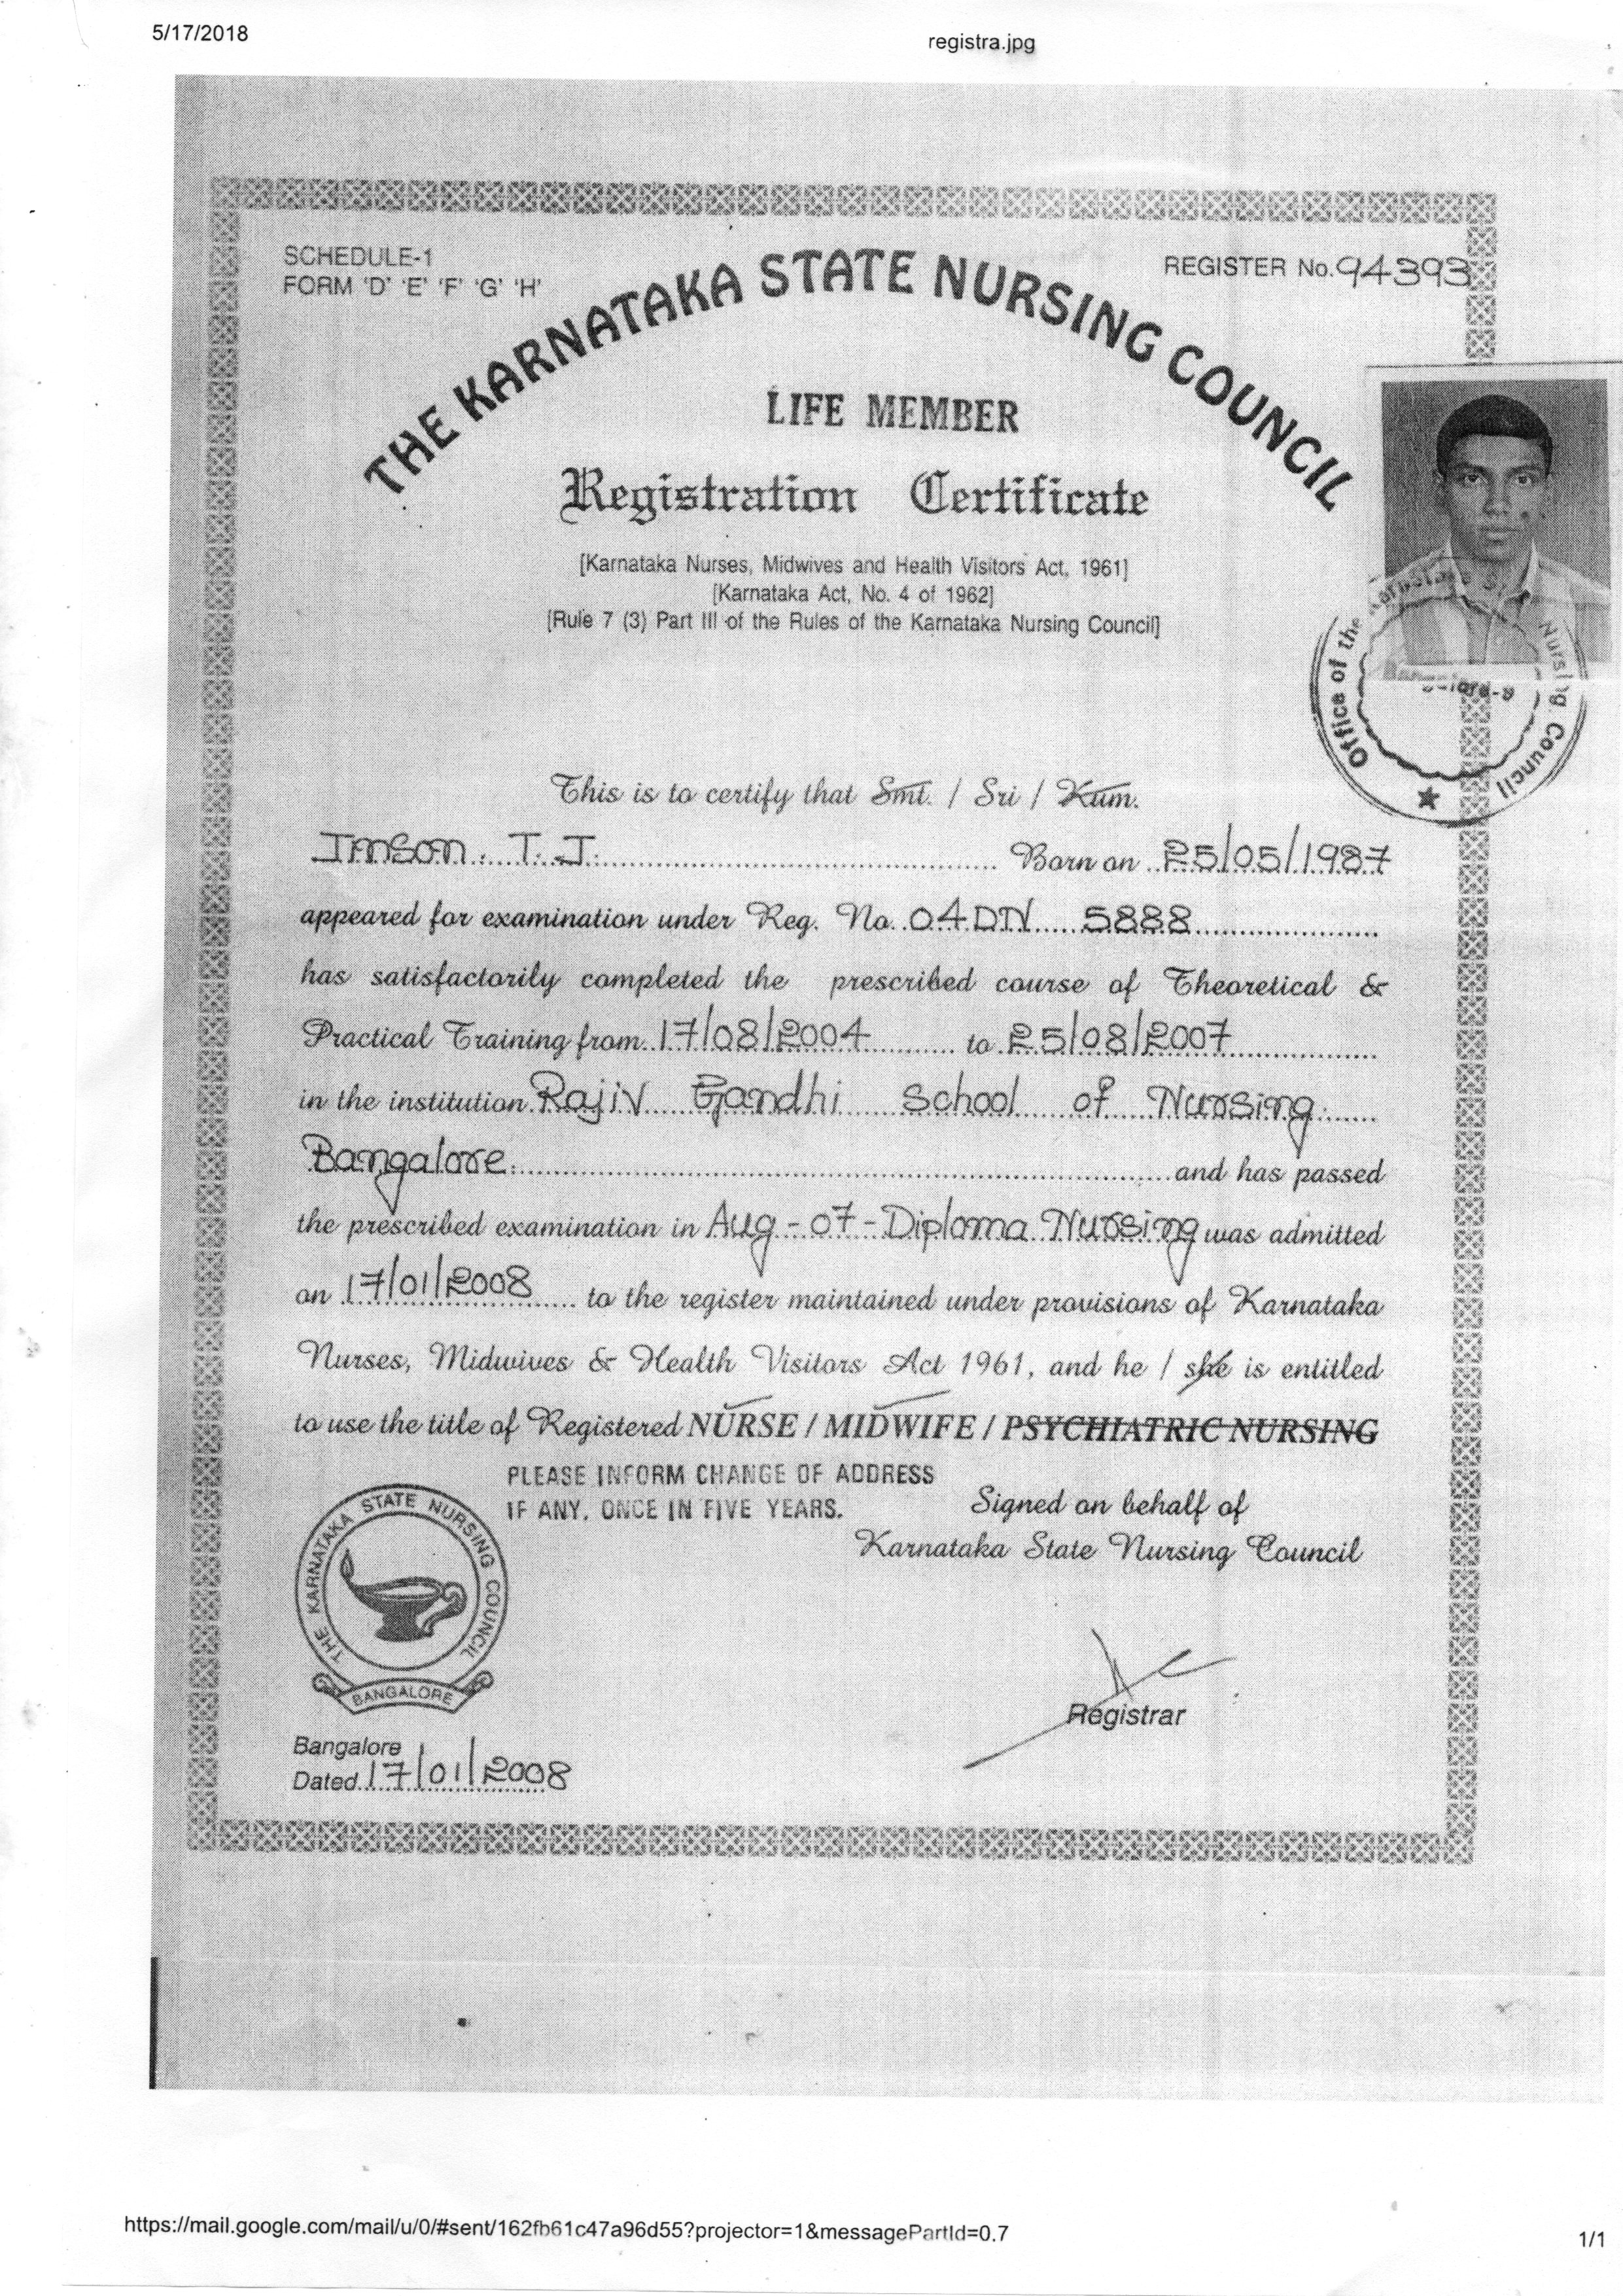 5/17/2018
registra.jpg
SCHEDULE-1
FORM 'D' 'E' 'F' 'G' 'H'
REGISTER No. 94393
THE KARNATAKA STATE NURSING COUNCIL
LIFE MEMBER
Registration Certificate
[Karnataka Nurses, Midwives and Health Visitors Act, 1961]
[Karnataka Act, No. 4 of 1962]
[Rule 7 (3) Part III of the Rules of the Karnataka Nursing Council]
Office of the Karnataka Nursing Council
This is to certify that Smt. / Sri / Kum.
Imson. T. J. Born on 25/05/1987
appeared for examination under Reg. No. 04DN 5888
has satisfactorily completed the prescribed course of Theoretical &
Practical Training from 17/08/2004 to 25/08/2007
in the institution Rajiv Gandhi School of Nursing.
Bangalore. and has passed
the prescribed examination in Aug-07-Diploma Nursing was admitted
on 17/01/2008 to the register maintained under provisions of Karnataka
Nurses, Midwives & Health Visitors Act 1961, and he / she is entitled
to use the title of Registered NURSE / MIDWIFE / PSYCHIATRIC NURSING
PLEASE INFORM CHANGE OF ADDRESS
IF ANY, ONCE IN FIVE YEARS.
Signed on behalf of
Karnataka State Nursing Council
THE KARNATAKA STATE NURSING COUNCIL
BANGALORE
Registrar
Bangalore
Dated 17/01/2008
https://mail.google.com/mail/u/0/#sent/162fb61c47a96d55?projector=1&messagePartId=0.7
1/1